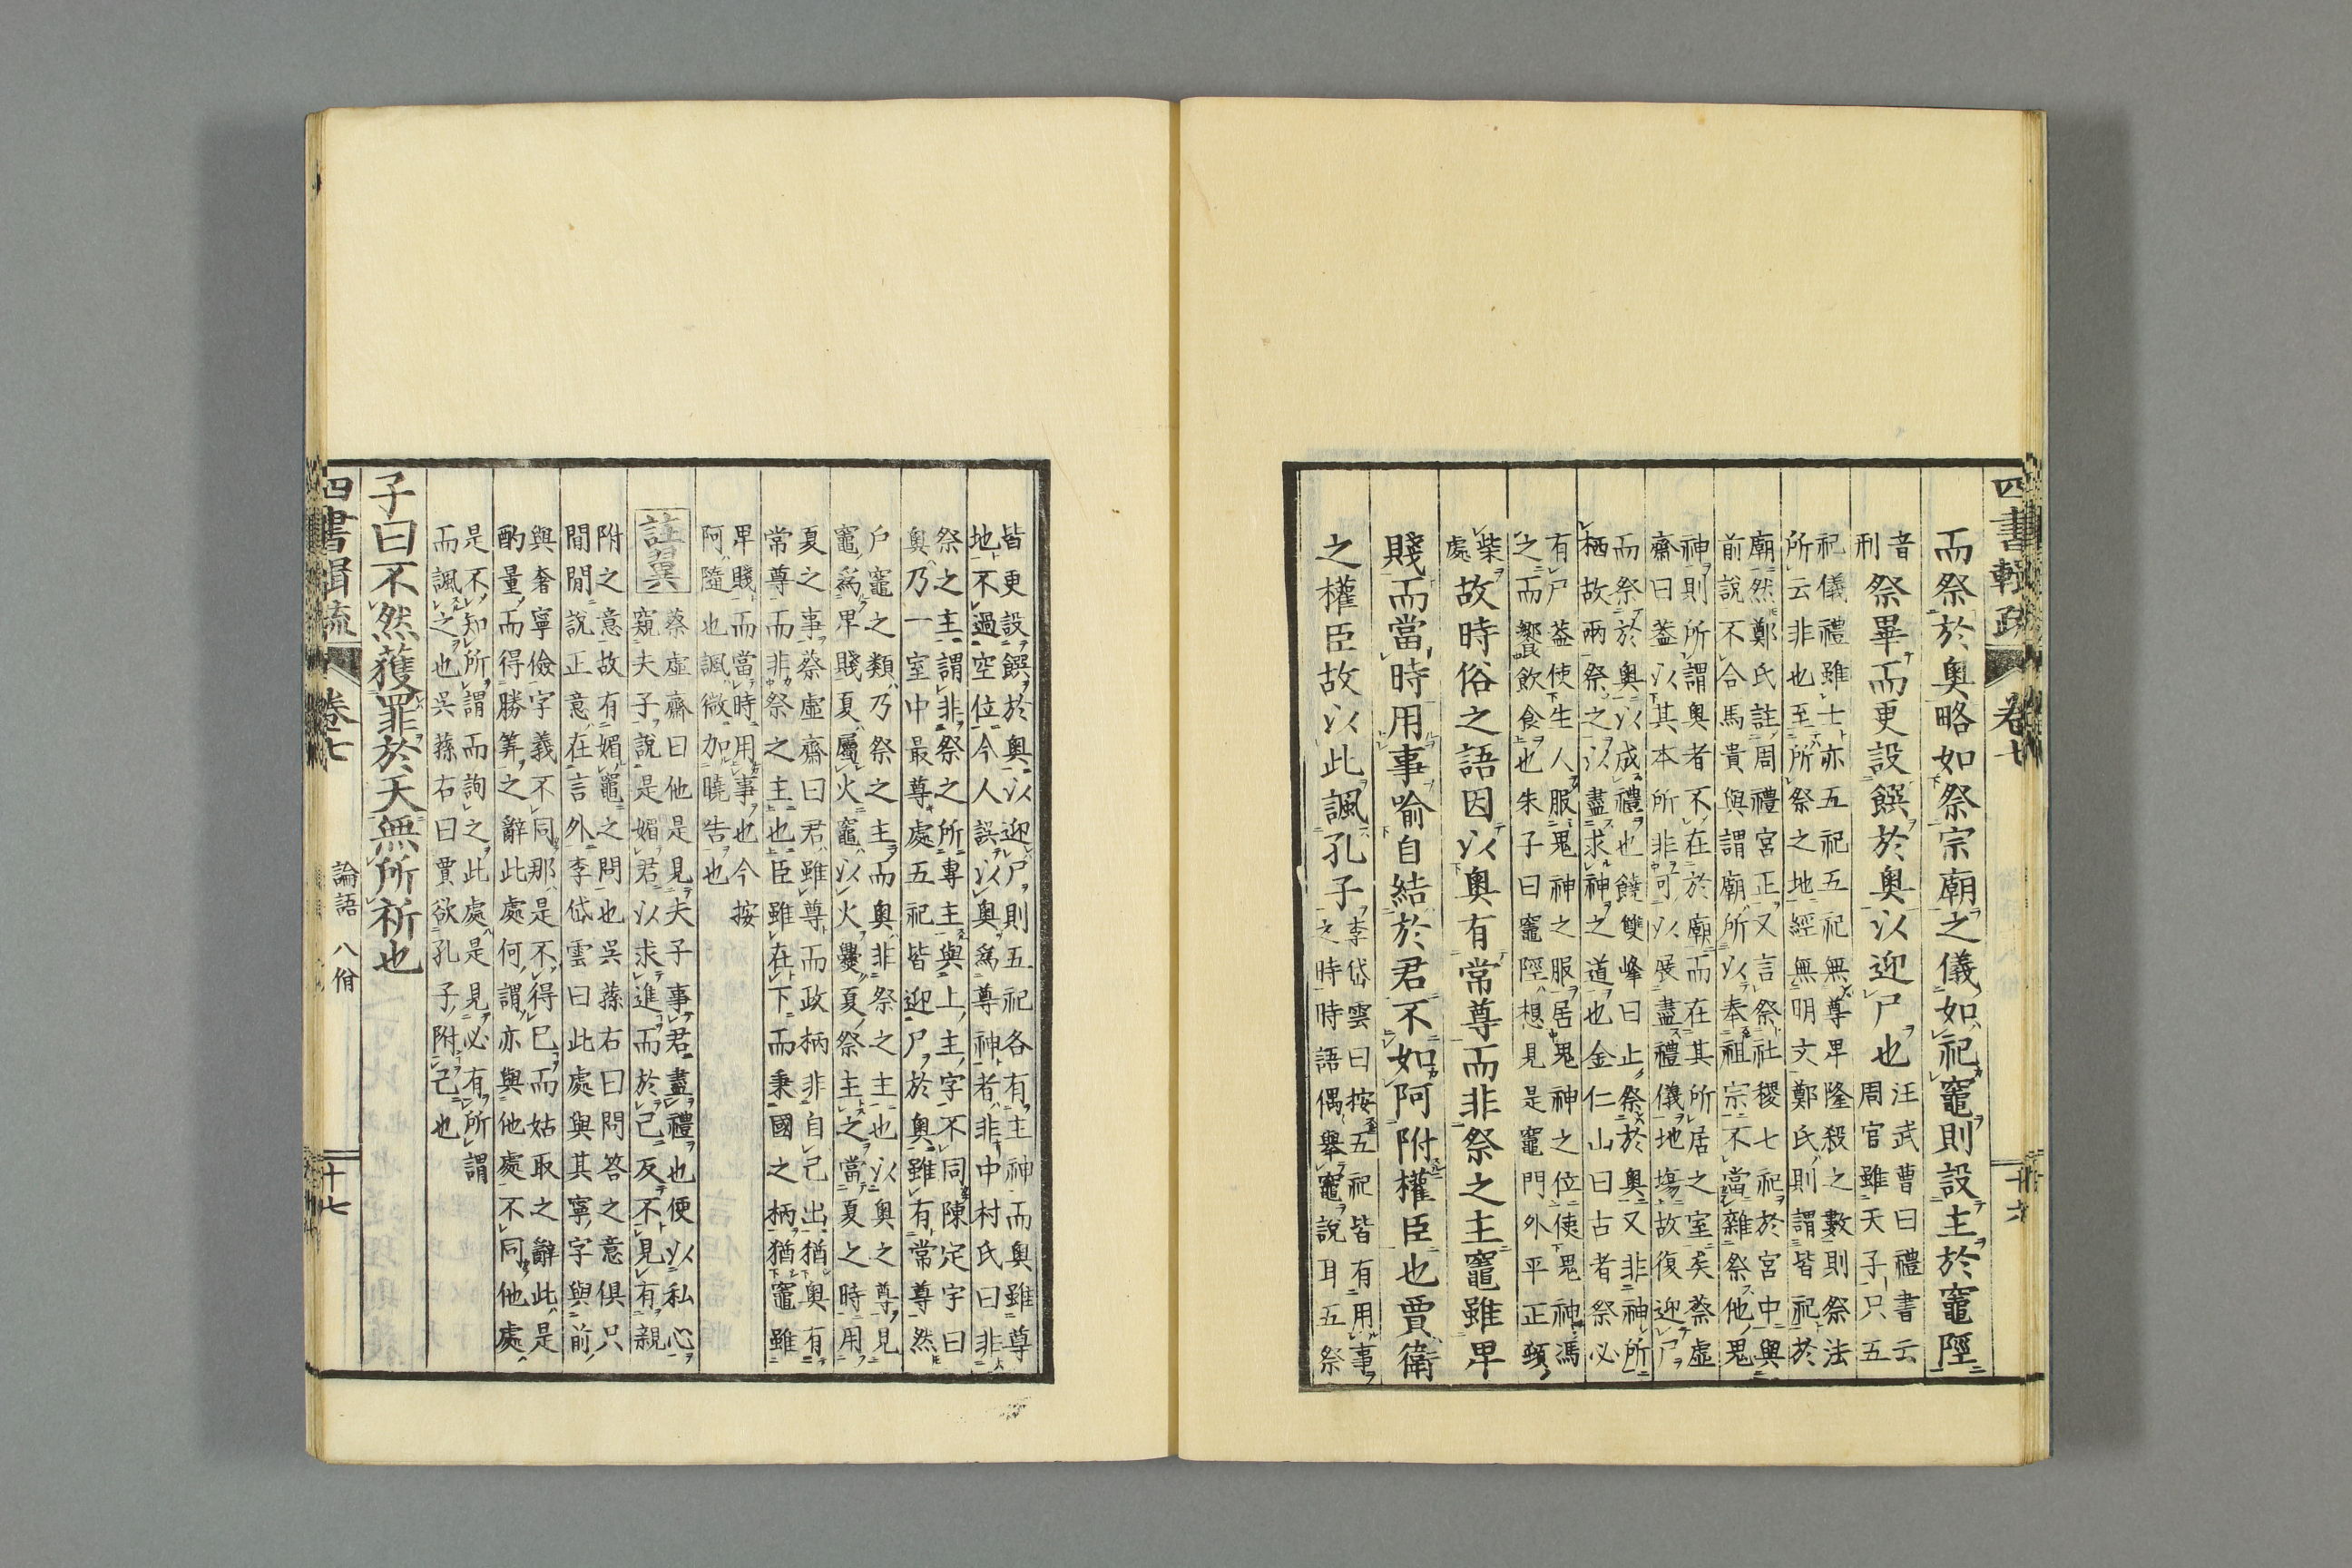 四書輯疏 卷七
而祭於奧略如祭宗廟之儀如祀竈則設主於竈陘
音
刑
祭畢而更設饌於奧以迎尸也
汪武曹曰禮書云
周官雖天子只五
祀儀禮雖士亦五祀五祀無尊卑隆殺之數則祭法
所云非也至所祭之地經無明文鄭氏則謂皆祀於
廟然鄭氏註周禮宮正又言祭社稷七祀於宮中與
前說不合馬貴與謂廟所以奉祖宗不當雜祭他鬼
神則所謂奧者不在於廟而在其所居之室矣蔡虛
齋曰蓋以其本所非可以展盡禮儀地塲故復迎尸
而祭於奧以成禮也饒雙峰曰止祭於奧又非神所
栖故兩祭之以盡求神之道也金仁山曰古者祭必
有尸蓋使生人服鬼神之服居鬼神之位使鬼神馮
之而饗飲食也朱子曰竈陘想見是竈門外平正頞
柴
處
故時俗之語因以奧有常尊而非祭之主竈雖卑
賤而當時用事喻自結於君不如阿附權臣也賈衛
之權臣故以此諷孔子
李岱雲曰按五祀皆有用事
之時時語偶舉竈說耳五祭
皆更設饌於奧以迎尸則五祀各有主神而奧雖尊
地不過空位今人誤以奧爲尊神者非中村氏曰非
祭之主謂非祭之所專主與上主字不同陳定宇曰
奧乃一室中最尊處五祀皆迎尸於奧雖有常尊然
戶竈之類乃祭之主而奧非祭之主也以奧之尊見
竈爲卑賤夏屬火竈以火爨夏祭主之當夏之時用
夏之事蔡虛齋曰君雖尊而政柄非自己出猶奧有
常尊而非祭之主也臣雖在下而秉國之柄猶竈雖
卑賤而當時用事也今按
阿隨也諷微加曉告也
註翼
蔡虛齋曰他是見夫子事君盡禮也便以私心
窺夫子說是媚君以求進而於己反不見有親
附之意故有媚竈之問也吳蓀右曰問答之意俱只
閒閒說正意在言外李岱雲曰此處與其寧字與前
與奢寧儉字義不同那是不得已而姑取之辭此是
酌量而得勝筭之辭此處何謂亦與他處不同他處
是不知所謂而詢之此處是見必有所謂
而諷之也吳蓀右曰賈欲孔子附己也
子曰不然獲罪於天無所祈也
四書輯疏 卷七 論語 八佾 十七